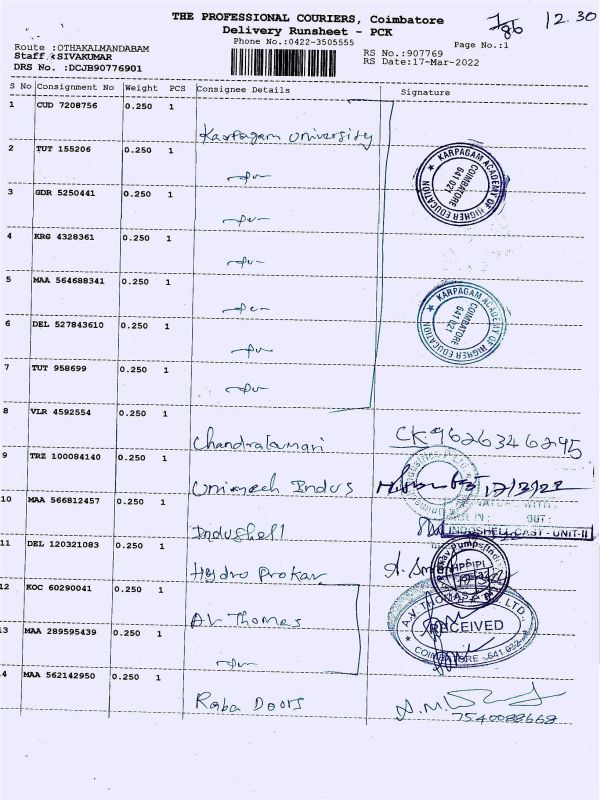 THE PROFESSIONAL COURIERS, Coimbatore
Delivery Runsheet - PCK
12.30
Phone No.:0422-3505555
Page No.:1
Route :OTHAKALMANDABAM
Staff :SIVAKUMAR
DRS No. :DCJB90776901
RS No.:907769
RS Date:17-Mar-2022
S No Consignment No Weight PCS Consignee Details Signature
1 CUD 7208756 0.250 1 Karpagam University
2 TUT 155206 0.250 1
KARPAGAM ACADEMY OF HIGHER EDUCATION
COIMBATORE
641 021
3 GDR 5250441 0.250 1
4 KRG 4328361 0.250 1
5 MAA 564688341 0.250 1
KARPAGAM ACADEMY OF HIGHER EDUCATION
COIMBATORE
641 021
6 DEL 527843610 0.250 1
7 TUT 958699 0.250 1
8 VLR 4592554 0.250 1 Chandrakumari CK 9626346295
9 TRZ 100084140 0.250 1 Unimech Indus 17/3/22
10 MAA 566812457 0.250 1 Indushell
OUT:
INDOSHELL CAST - UNIT-II
11 DEL 120321083 0.250 1 Hydro Prokav
12 KOC 60290041 0.250 1 AV Thomas
A.V. THOMAS LTD.
RECEIVED
COIMBATORE - 641 032
13 MAA 289595439 0.250 1
14 MAA 562142950 0.250 1 Raba Doors
7540088668